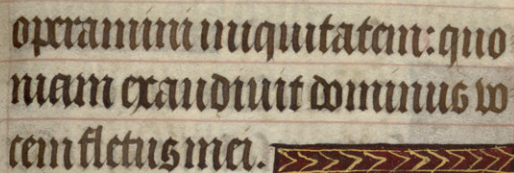 operamini iniquitatem: quo
niam exaudiuit dominus uo
cem fletus mei.